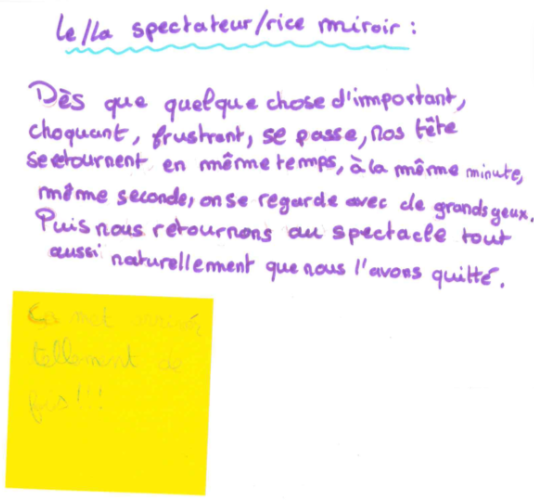 le/la spectateur/rice miroir :
Dès que quelque chose d'important,
choquant, frustrant, se passe, nos tête
se etournent en même temps, à la même minute,
même seconde, on se regarde avec de grands yeux.
Puis nous retournons au spectacle tout
aussi naturellement que nous l'avons quitté.
Ça mot arriver
tellement de
fois!!!